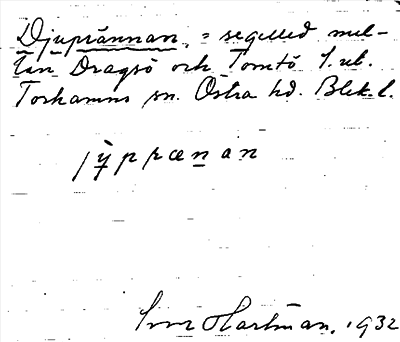 Djuprännan, = segelled mel-
lan Dragsö och Tomtö 
Torhamns sn. Östra hd. Blek. l.
jỳprænan
Hartman, 1932